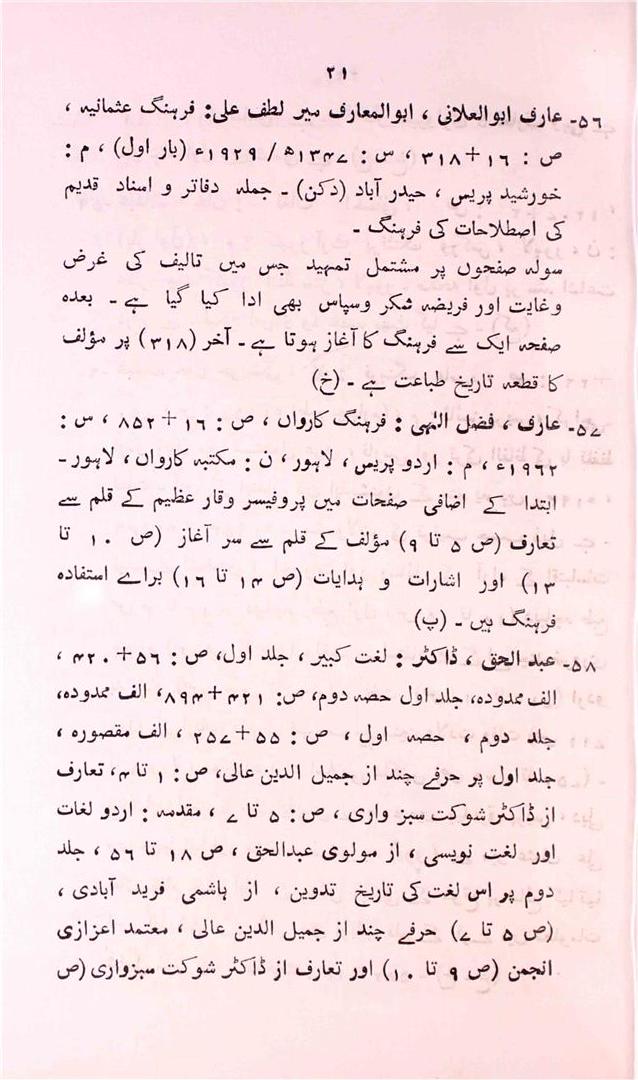 ۲۱
۵۶۔ عارف ابوالعلائی ، ابوالمعارف میر لطف علی: فرہنگ عثمانیہ ،
ص : ۱۶+۳۱۸ ، س : ۱۳۴۷ھ / ۱۹۲۹ء (بار اول) ، م :
خورشید پریس ، حیدر آباد (دکن) ۔ جملہ دفاتر و اسناد قدیم
کی اصطلاحات کی فرہنگ ۔
سولہ صفحوں پر مشتمل تمہید جس میں تالیف کی غرض
وغایت اور فریضہ شکر وسپاس بھی ادا کیا گیا ہے ۔ بعدہ
صفحہ ایک سے فرہنگ کا آغاز ہوتا ہے ۔ آخر (۳۱۸) پر مؤلف
کا قطعہ تاریخ طباعت ہے ۔ (خ)
۵۷۔ عارف ، فضل الٰہی : فرہنگ کارواں ، ص : ۱۶+۸۵۲ ، س :
۱۹۶۲ء ، م : اردو پریس ، لاہور ، ن : مکتبہ کارواں ، لاہور ۔
ابتدا کے اضافی صفحات میں پروفیسر وقار عظیم کے قلم سے
تعارف (ص ۵ تا ۹) مؤلف کے قلم سے سر آغاز (ص ۱۰ تا
۱۳) اور اشارات و ہدایات (ص ۱۴ تا ۱۶) براے استفادہ
فرہنگ ہیں ۔ (پ)
۵۸۔ عبد الحق ، ڈاکٹر : لغت کبیر ، جلد اول، ص : ۵۶+۴۲۰ ،
الف ممدودہ، جلد اول حصہ دوم، ص: ۴۲۱+۸۹۴، الف ممدودہ،
جلد دوم ، حصہ اول ، ص : ۵۵+۲۵۷ ، الف مقصورہ ،
جلد اول پر حرفے چند از جمیل الدین عالی، ص : ۱ تا ۴، تعارف
از ڈاکٹر شوکت سبز واری ، ص : ۵ تا ۷ ، مقدمہ : اردو لغات
اور لغت نویسی ، از مولوی عبدالحق ، ص ۱۸ تا ۵۶ ، جلد
دوم پر اس لغت کی تاریخ تدوین ، از ہاشمی فرید آبادی ،
(ص ۵ تا ۷) حرفے چند از جمیل الدین عالی ، معتمد اعزازی
انجمن (ص ۹ تا ۱۰) اور تعارف از ڈاکٹر شوکت سبزواری (ص